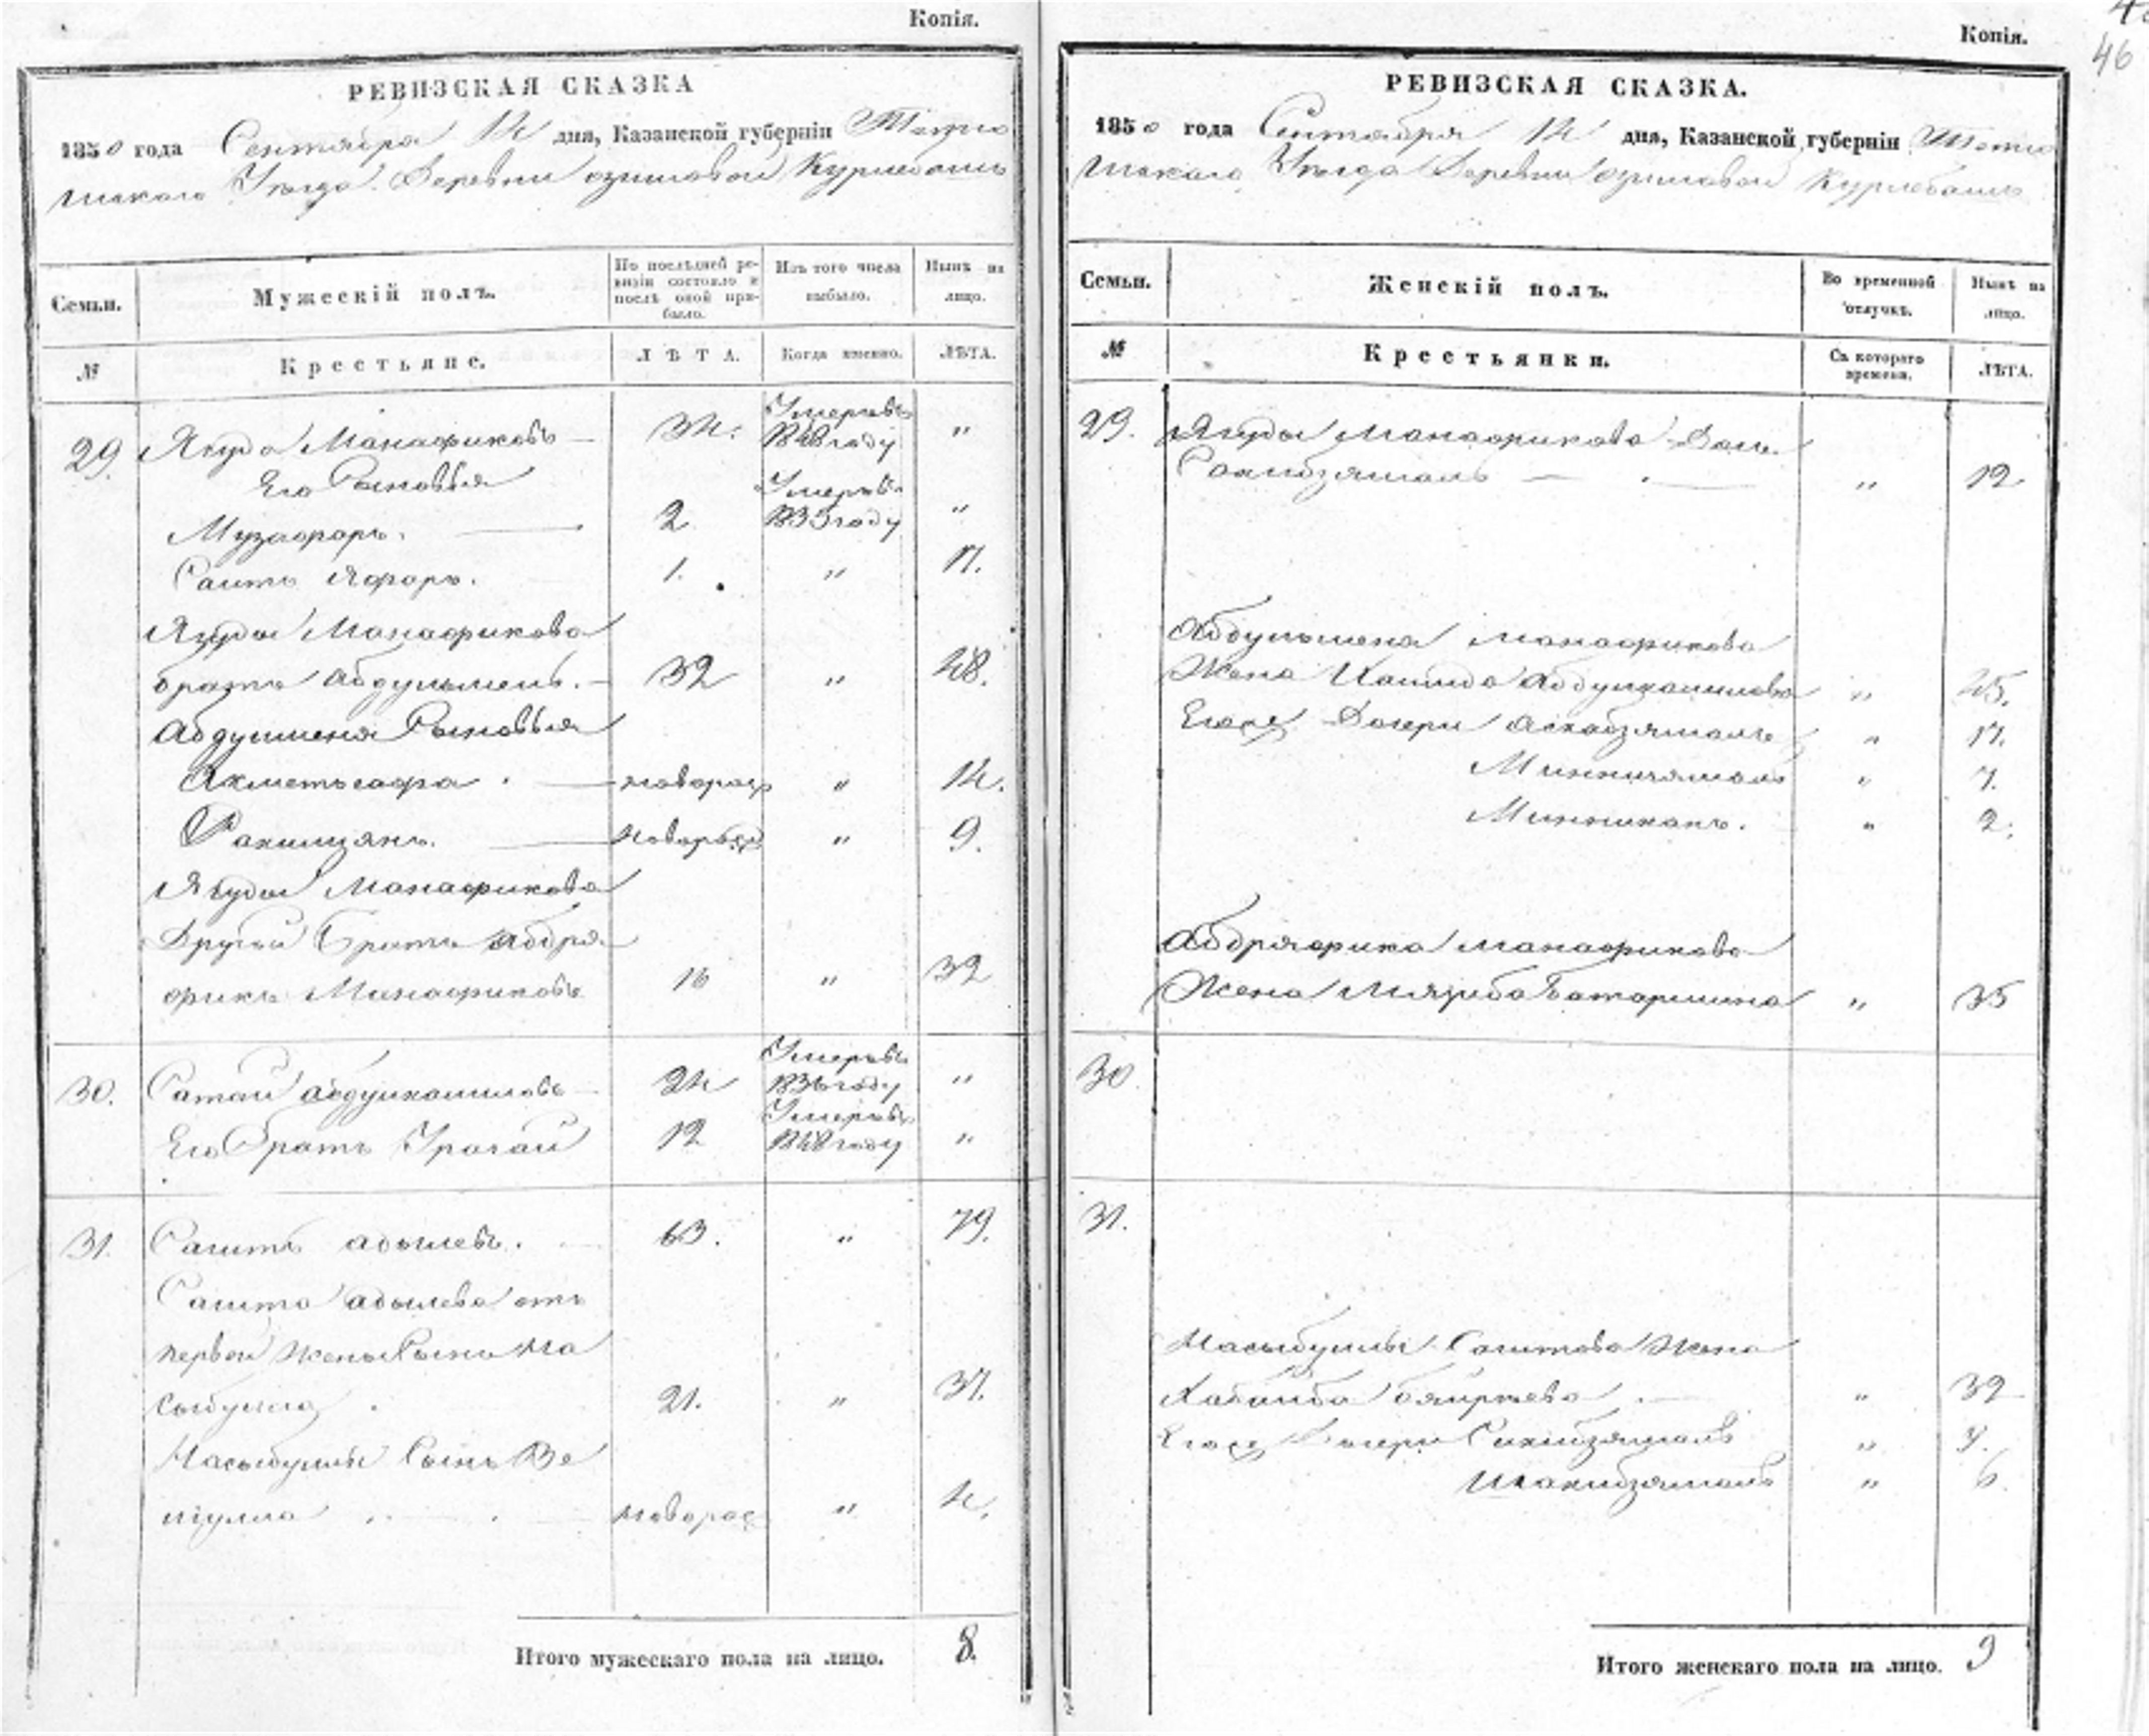 Копія.
РЕВИЗСКАЯ СКАЗКА
1850 года Сентября 14 дня, Казанской губерніи Тетю
шскаго Уезда Деревни
Семьи.
Мужескій полъ.
По последней ре-
визіи состояло и
послѣ оной при-
было.
Изъ того числа
выбыло.
Нынѣ на
лицо.
№
Крестьяне.
ЛѢТА.
Когда именно.
ЛѢТА.
29. Ягуда Манафиковъ 34. Умеръ въ 1848 году "
Его Сыновья
Музафаръ. 2 Умеръ въ 1835 году "
Саитъ Яфаръ. 1. " 17.
Ягуды Манафикова
братъ Абдулменъ. 32 " 48.
Абдулменя Сыновья
Ахметьсафа новорож " 14.
Рахимзянъ. новорож " 9.
Ягуды Манафикова
Другой братъ Абдра
фикъ Манафиковъ 16 " 32
30. Сатай Абдулхалиловъ 24 Умеръ въ 1836 году "
Его братъ Урагай 12 Умеръ въ 1848 году "
31. Сагитъ Адылевъ. 63. " 79.
Сагита Адылева отъ
первой жены Сынъ На
сыбулла 21. " 37.
Насыбуллы Сынъ Ве
лулла новорож " 4.
Итого мужескаго пола на лицо. 8.
Копія.
46
РЕВИЗСКАЯ СКАЗКА.
1850 года Сентября 14 дня, Казанской губерніи Тетю
шскаго Уезда Деревни
Семьи.
Женскій полъ.
Во временной
отлучкѣ.
Нынѣ на
лицо.
№
Крестьянки.
Съ котораго
времени.
ЛѢТА.
29. Ягуды Манафикова Дочь
" 12
Абдулменя Манафикова
Жена Хамида Абдулхалилова " 45.
Его Дочери " 17.
Миннизямаль " 7.
Миннихань. " 2.
Абдряфика Манафикова
Жена Батаршина " 35
30
31.
Насыбуллы Сагитова Жена
Хабиба " 32
Его Дочери "
Шакибзямаль " 6.
Итого женскаго пола на лицо. 9